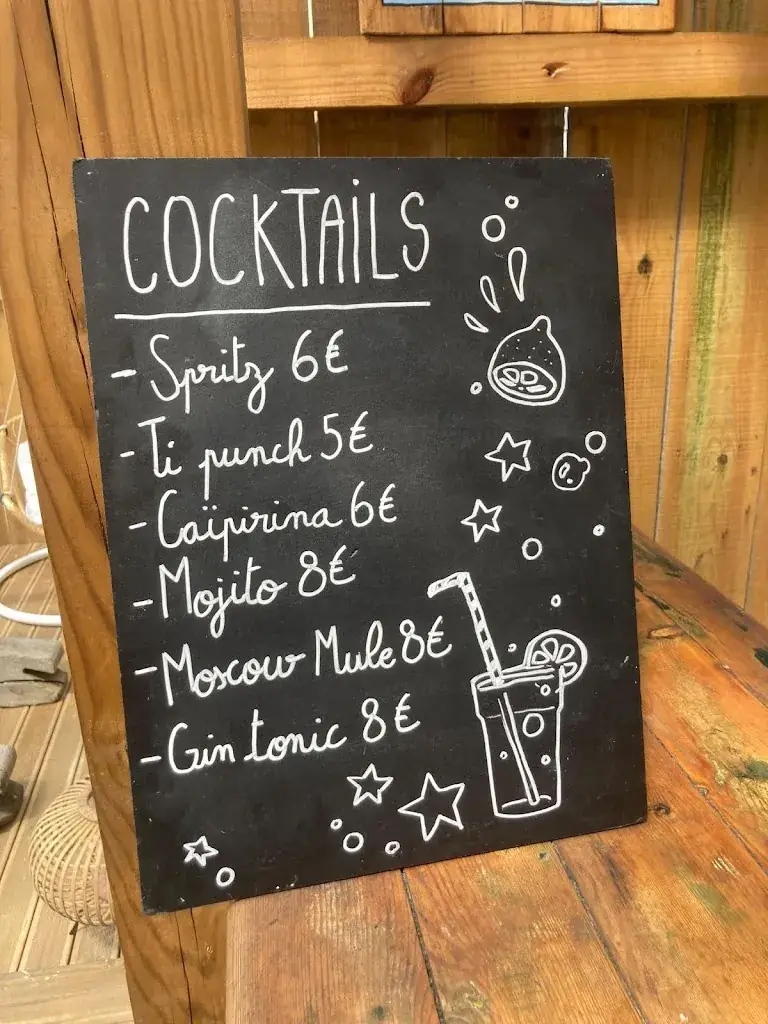 COCKTAiLS
- Spritz 6€
- Ti punch 5€
- Caïpirina 6€
- Mojito 8€
- Moscow Mule 8€
- Gin tonic 8€